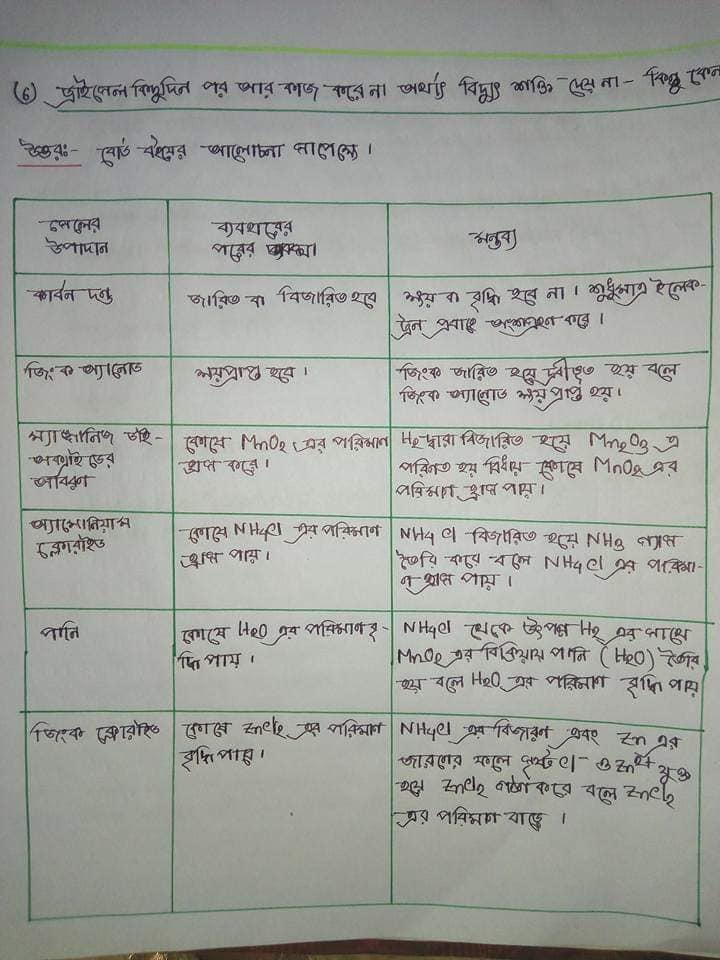 (6) ড্রাইসেল কিছুদিন পর আর কাজ করে না অর্থাৎ বিদ্যুৎ শক্তি দেয় না - কিন্তু কেন
উত্তরঃ- বোর্ড বইয়ের আলোচনা সাপেক্ষে ।
সেলের
উপাদান
ব্যবহারের
পরের অবস্থা
মন্তব্য
কার্বন দন্ড
জারিত বা বিজারিত হবে
ক্ষয় বা বৃদ্ধি হবে না । শুধুমাত্র ইলেক-
ট্রন প্রবাহে অংশগ্রহন করে ।
জিংক অ্যানোড
ক্ষয়প্রাপ্ত হবে ।
জিংক জারিত হয়ে দ্রবীভূত হয় বলে
জিংক অ্যানোড ক্ষয় প্রাপ্ত হয় ।
ম্যাঙ্গানিজ ডাই-
অক্সাইডের
আবরণ
কোষে MnO2 এর পরিমান
হ্রাস করে ।
H2 দ্বারা বিজারিত হয়ে Mn2O3 এ
পরিনত হয় বিধায় কোষে MnO2 এর
পরিমাণ হ্রাস পায় ।
অ্যামোনিয়াম
ক্লোরাইড
কোষে NH4Cl এর পরিমান
হ্রাস পায় ।
NH4Cl বিজারিত হয়ে NH3 গ্যাস
তৈরি করে বলে NH4Cl এর পরিমা-
ণ হ্রাস পায় ।
পানি
কোষে H2O এর পরিমান বৃ-
দ্ধি পায় ।
NH4Cl থেকে উৎপন্ন H2 এর সাথে
MnO2 এর বিক্রিয়ায় পানি (H2O) তৈরি
হয় বলে H2O এর পরিমাণ বৃদ্ধি পায়
জিংক ক্লোরাইড
কোষে ZnCl2 এর পরিমান
বৃদ্ধি পায় ।
NH4Cl এর বিজারণ এবং Zn এর
জারণের ফলে সৃষ্ট Cl- ও Zn2+ যুক্ত
হয়ে ZnCl2 গঠন করে বলে ZnCl2
এর পরিমাণ বাড়ে ।